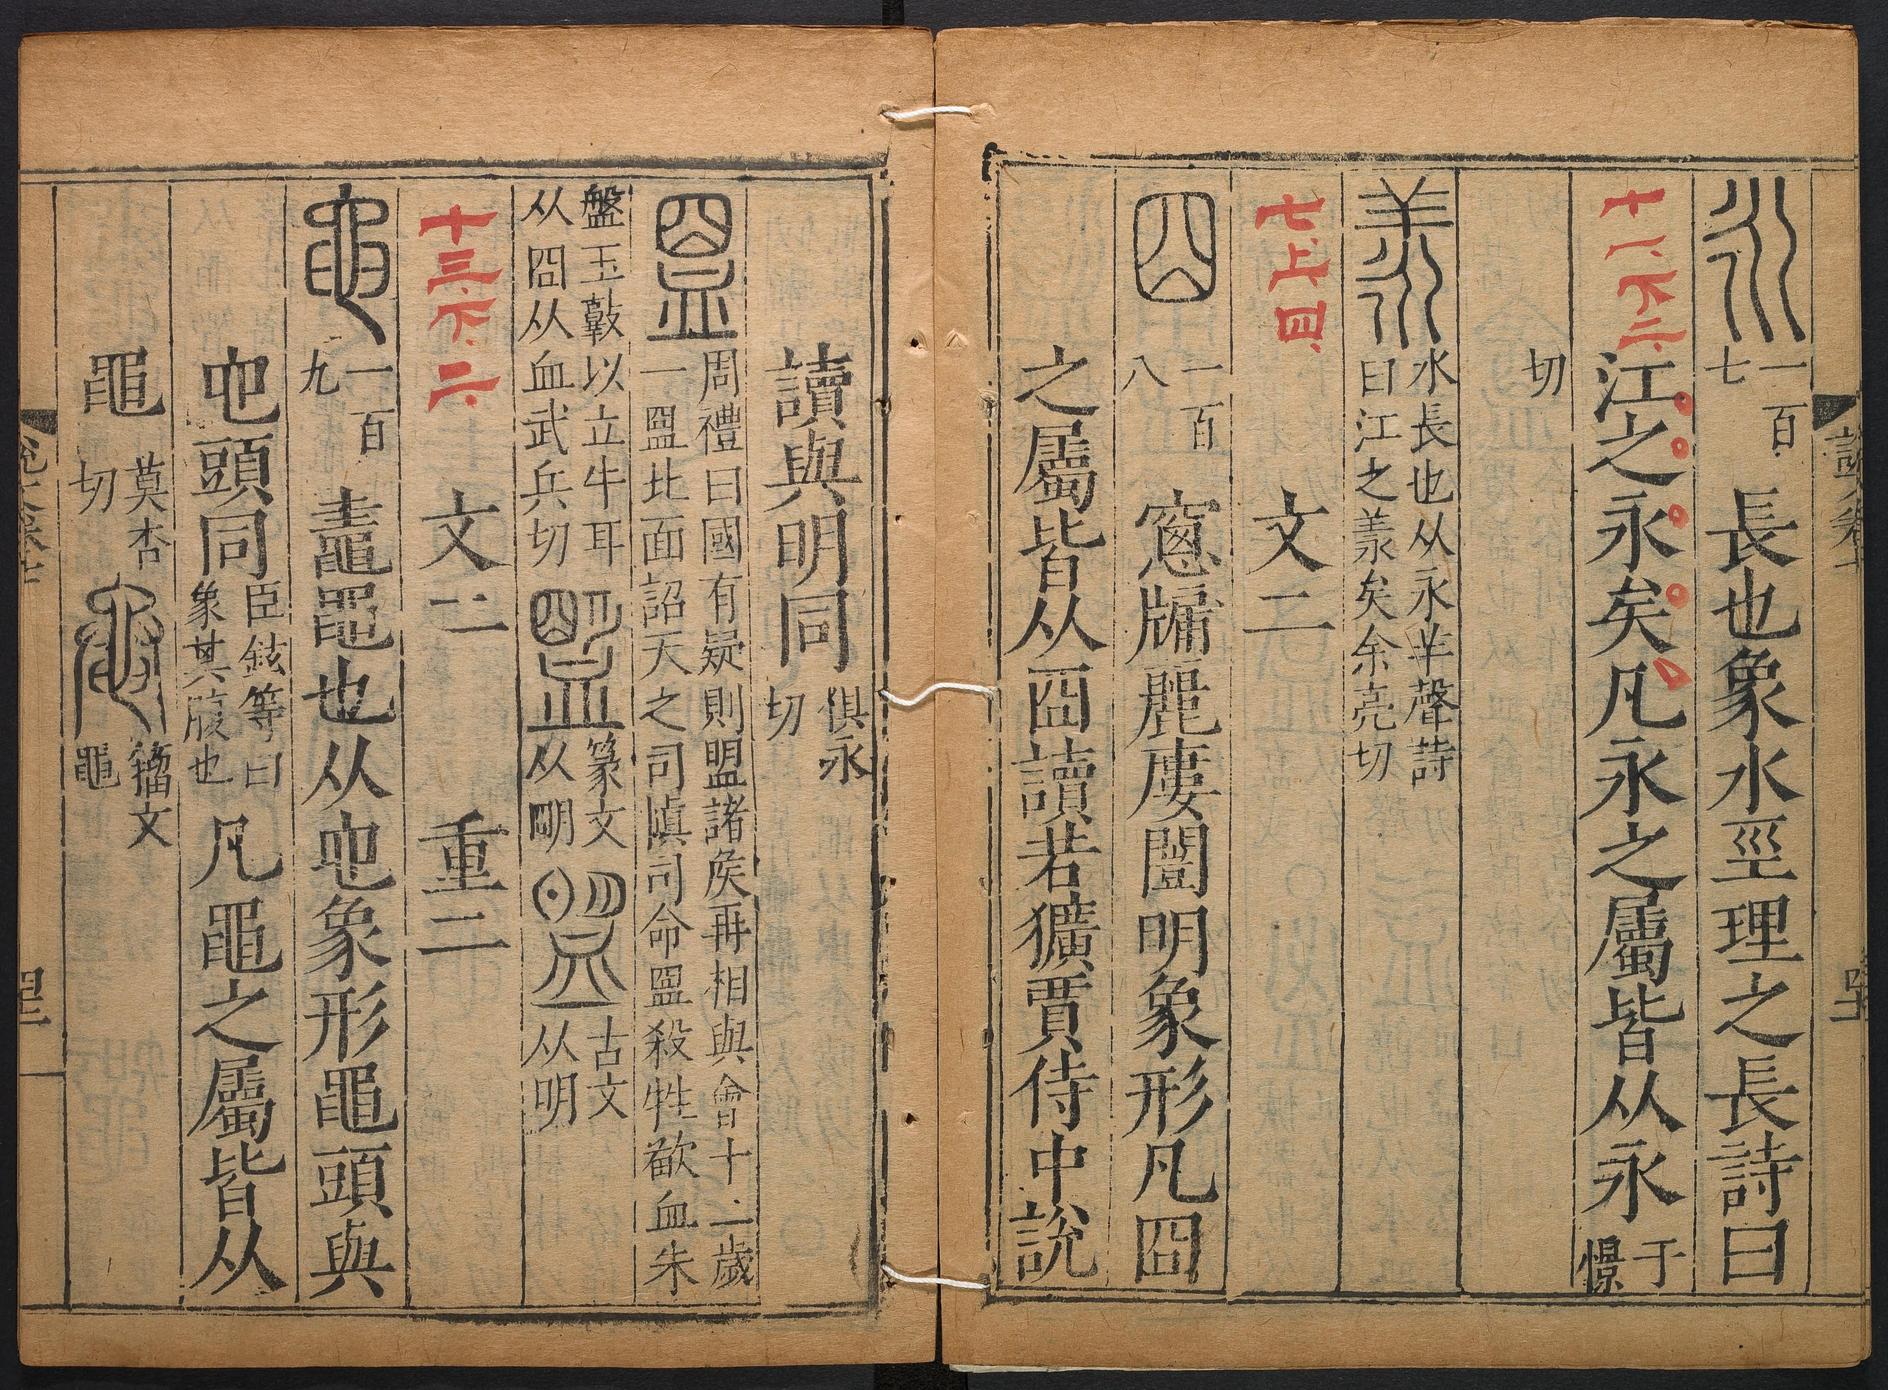 一百七 長也象水巠理之長詩曰
十一.下二.
江之永矣凡永之屬皆从永 于憬
切
羕 水長也从永羊聲詩
曰江之羕矣余亮切
七.上四.
文二
囧 一百八 窻牖麗廔闓明象形凡囧
之屬皆从囧讀若獷賈侍中說
讀與明同 俱永切
周禮曰國有疑則盟諸矦再相與會十二歲
一盟北面詔天之司愼司命盟殺牲歃血朱
盤玉敦以立牛耳
从囧从血武兵切
篆文从朙
古文从明
十三.下.二.
文二 重二
黽 一百九 鼃黽也从它象形黽頭與
它頭同 臣鉉等曰象其腹也 凡黽之屬皆从
黽 莫杏切 籒文黽